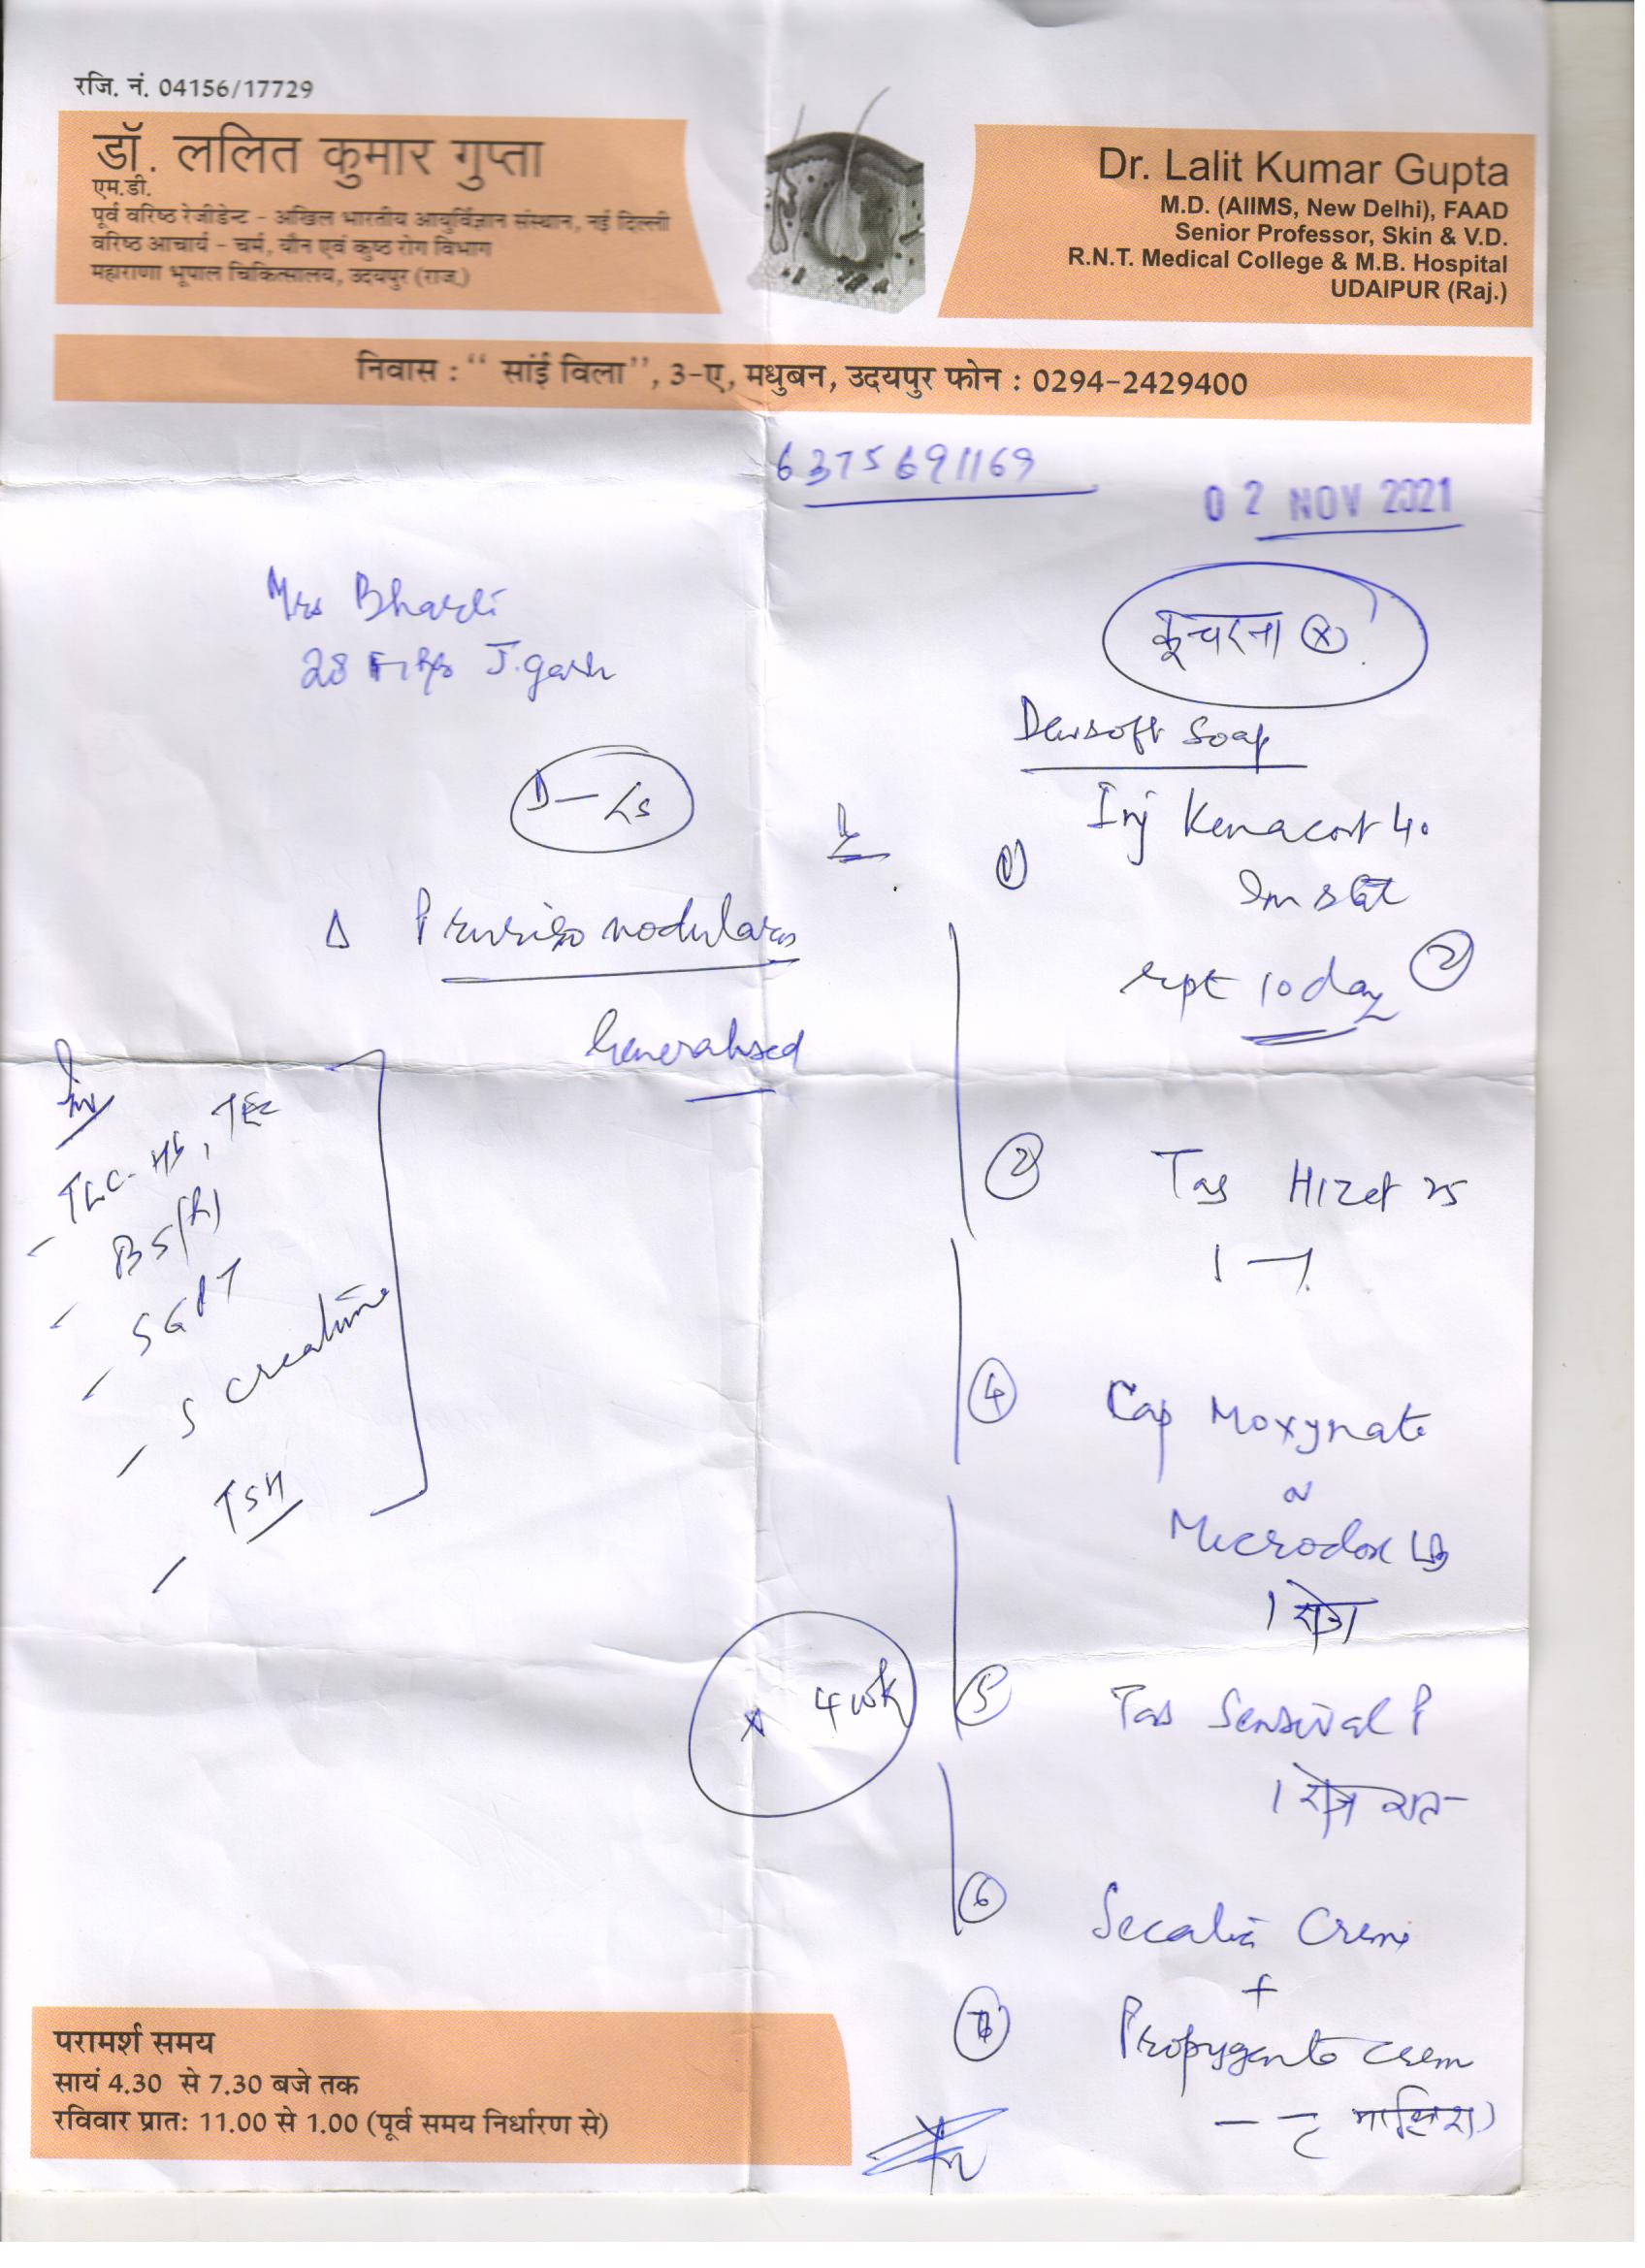 रजि. नं. 04156/17729
डॉ. ललित कुमार गुप्ता
एम.डी.
पूर्व वरिष्ठ रेजीडेन्ट - अखिल भारतीय आयुर्विज्ञान संस्थान, नई दिल्ली
वरिष्ठ आचार्य - चर्म, यौन एवं कुष्ठ रोग विभाग
महाराणा भूपाल चिकित्सालय, उदयपुर (राज.)
Dr. Lalit Kumar Gupta
M.D. (AIIMS, New Delhi), FAAD
Senior Professor, Skin & V.D.
R.N.T. Medical College & M.B. Hospital
UDAIPUR (Raj.)
निवास : “ सांई विला”, 3-ए, मधुबन, उदयपुर फोन : 0294-2429400
6375691169
02 NOV 2021
Mrs Bharti
28 J.garh
D-
Δ Prurigo nodularis
Generalised
Inv
TLC-Hb, TEC
BS(R)
SGPT
S creatinine
TSH
x 4 wk
कूचरना (x)
Dewsoft Soap
① Inj Kenacort 40
Im stat
rept 10 day ②
Tab Hizet 25
1 - 1
④ Cap Moxynate
Microdox LB
1 रोज
⑤ Tab Sensival P
1 रोज रात
⑥ Secalia Creme
+
Propygenta crem
मालिश
परामर्श समय
सायं 4.30 से 7.30 बजे तक
रविवार प्रातः 11.00 से 1.00 (पूर्व समय निर्धारण से)